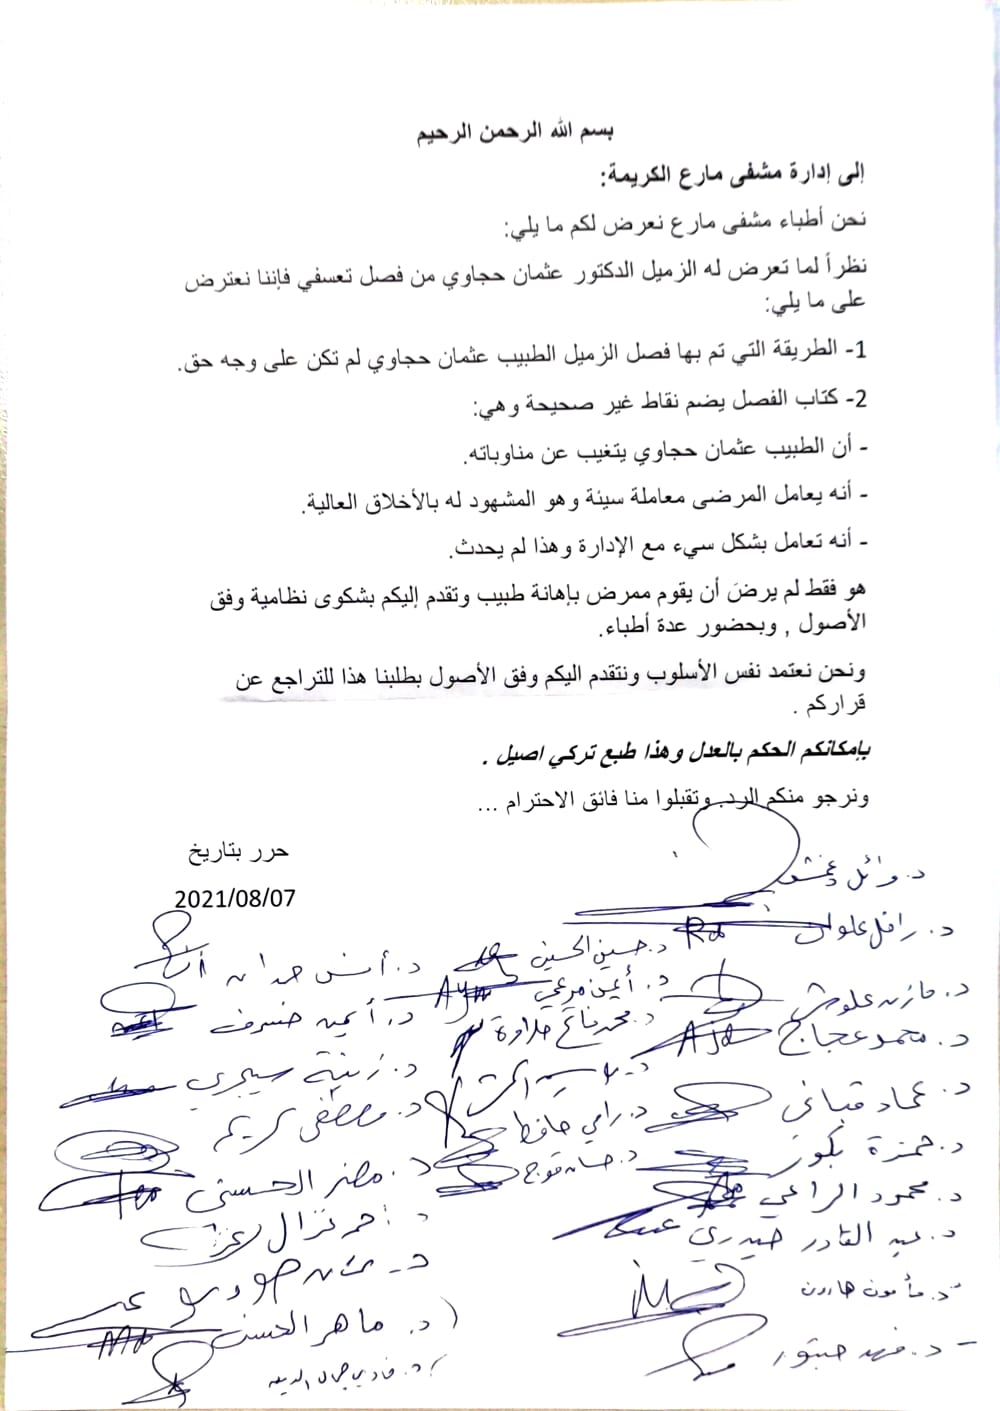 بسم الله الرحمن الرحيم
إلى إدارة مشفى مارع الكريمة:
نحن أطباء مشفى مارع نعرض لكم ما يلي:
نظراً لما تعرض له الزميل الدكتور عثمان حجاوي من فصل تعسفي فإننا نعترض
على ما يلي:
1- الطريقة التي تم بها فصل الزميل الطبيب عثمان حجاوي لم تكن على وجه حق.
2- كتاب الفصل يضم نقاط غير صحيحة وهي:
- أن الطبيب عثمان حجاوي يتغيب عن مناوباته.
- أنه يعامل المرضى معاملة سيئة وهو المشهود له بالأخلاق العالية.
- أنه تعامل بشكل سيء مع الإدارة وهذا لم يحدث.
هو فقط لم يرضَ أن يقوم ممرض بإهانة طبيب وتقدم إليكم بشكوى نظامية وفق
الأصول , وبحضور عدة أطباء.
ونحن نعتمد نفس الأسلوب ونتقدم اليكم وفق الأصول بطلبنا هذا للتراجع عن
قراركم .
بإمكانكم الحكم بالعدل وهذا طبع تركي اصيل .
ونرجو منكم الرد وتقبلوا منا فائق الاحترام ...
حرر بتاريخ
2021/08/07
د. وائل
د. علوان
د. حسين الحسين
د. أنس حمدان
د. مازن علوش
د. أيمن مرعي
د. أيمن خسرف
د. محمد عجاج
د. محمد فاتح حلاوة
د. زينة سيجري
د. عماد قباني
د. رامي حافظ
د. مصطفى كريم
د. حمزة بكور
د. حسان قوج
د. مضر الحسني
د. محمود الراعي
د. أحمد غزال
د. عبد القادر حيدري
د. مأمون هارون
د. ماهر الحسن
د. فهد حبتور
د. فادي جمال الدين